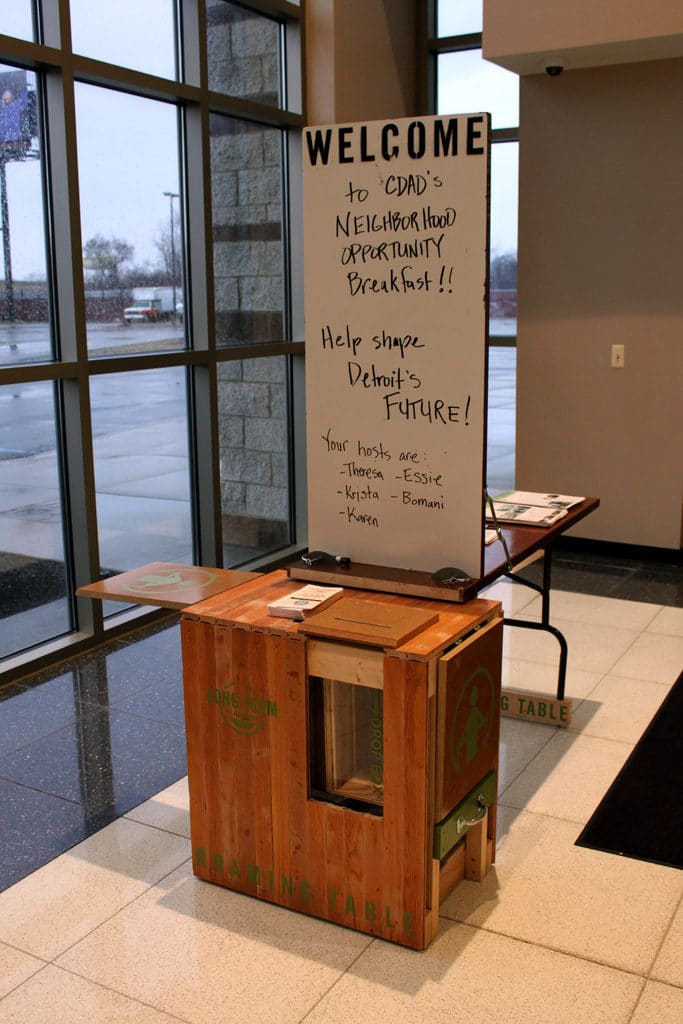 WELCOME
to CDAD's
NEIGHBORHOOD
OPPORTUNITY
Breakfast!!
Help shape
Detroit's
FUTURE!
Your hosts are:
-Theresa -Essie
-Krista -Bomani
-Karen
LONG TERM
DROP BOX
G TABLE
ROAMING TABLE